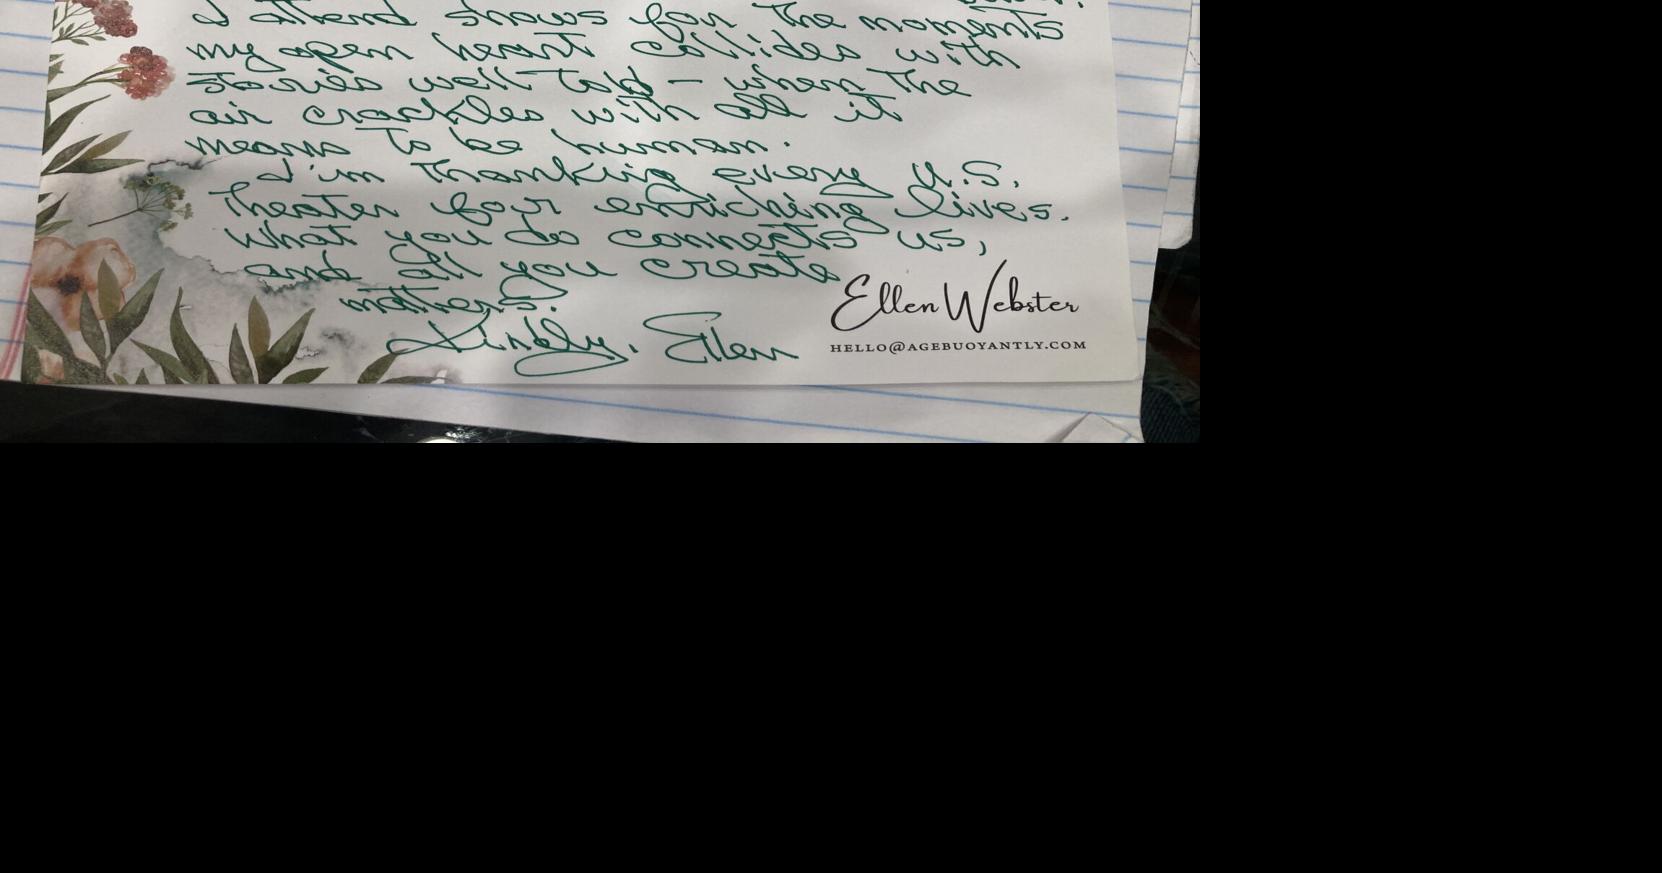 I attend shows for the moments
my open heart collides with
stories well told – when the
air crackles with all it
means to be human.
I'm thanking every U.S.
theater for enriching lives.
What you do connects us,
and all you create
matters.
Kindly, Ellen
Ellen Webster
HELLO@AGEBUOYANTLY.COM